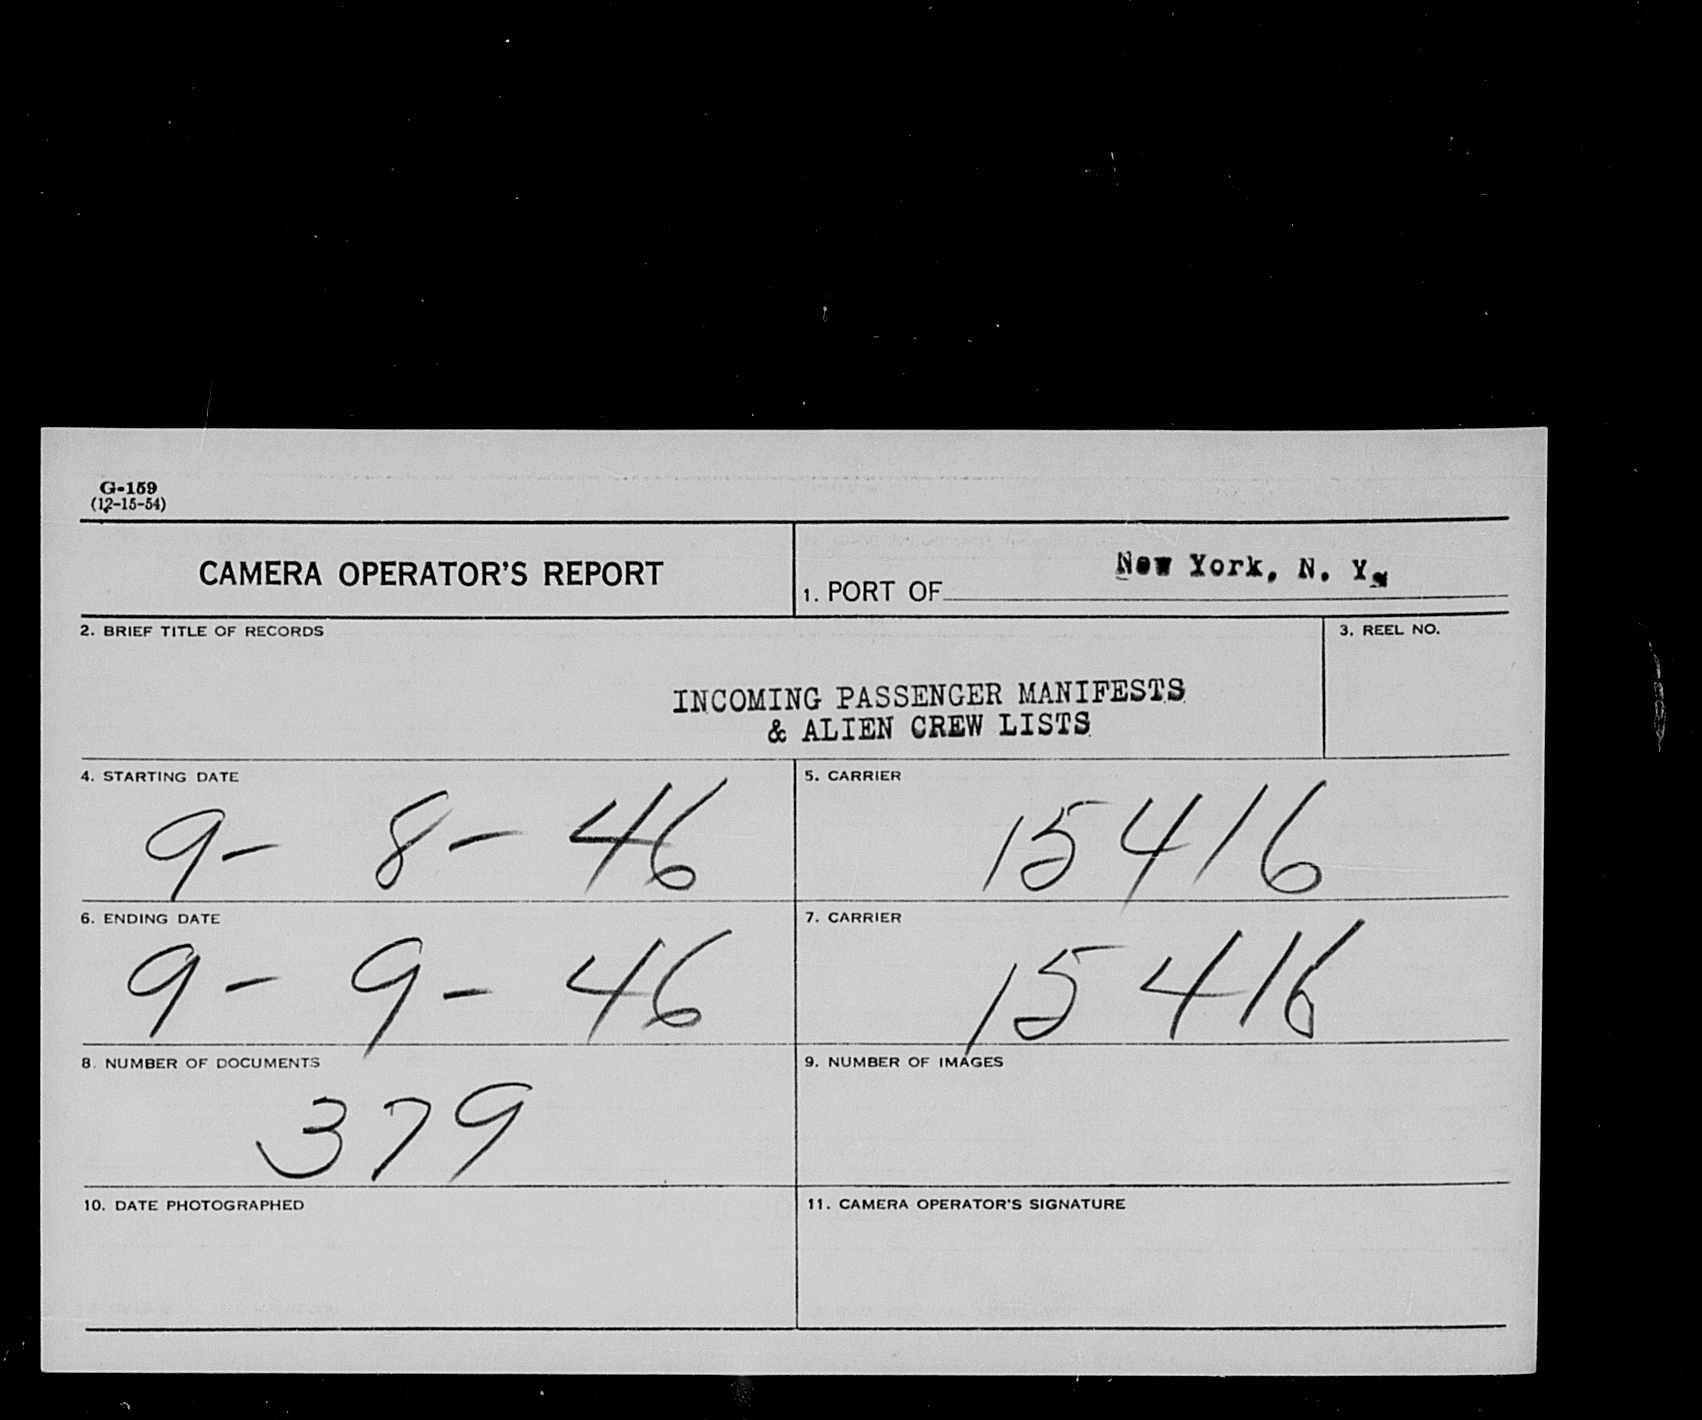 G-159
(12-15-54)
CAMERA OPERATOR'S REPORT
1. PORT OF New York, N. Y.
2. BRIEF TITLE OF RECORDS
3. REEL NO.
INCOMING PASSENGER MANIFESTS
& ALIEN CREW LISTS
4. STARTING DATE
9- 8- 46
5. CARRIER
15416
6. ENDING DATE
9- 9- 46
7. CARRIER
15416
8. NUMBER OF DOCUMENTS
379
9. NUMBER OF IMAGES
10. DATE PHOTOGRAPHED
11. CAMERA OPERATOR'S SIGNATURE